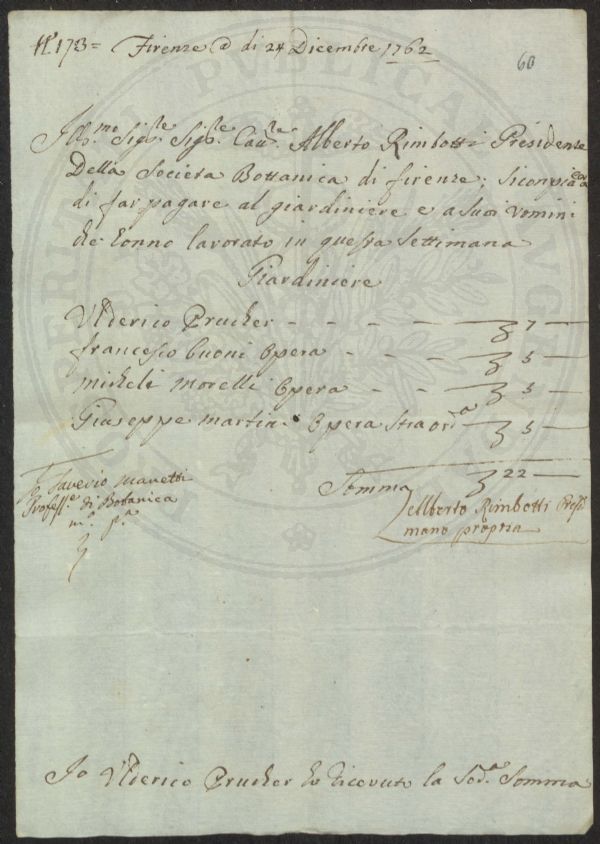 N.º 173 = Firenze @ di 24 Dicembre 1762
60
Ill.mo Sig.re Sig.re Cau.re Alberto Rimbotti Presidente
Della Societa Bottanica di firenze; si conpiacera
di far pagare al giardiniere e a suoi vomini
che honno lavorato in questa Settimana
Giardiniere
Vlderico Prucher - - - - - 7 —
francesco buoni Opera - - - 5 —
micheli morelli Opera - - 5 —
Giuseppe martin Opera Straord.a 5 —
Somma 22 —
Saverio Manetti
Profess.e di Botanica
m.o p.a
Alberto Rimbotti Presid.
mano propria
Io Vlderico Prucher ho ricevuto la Sod.a Somma